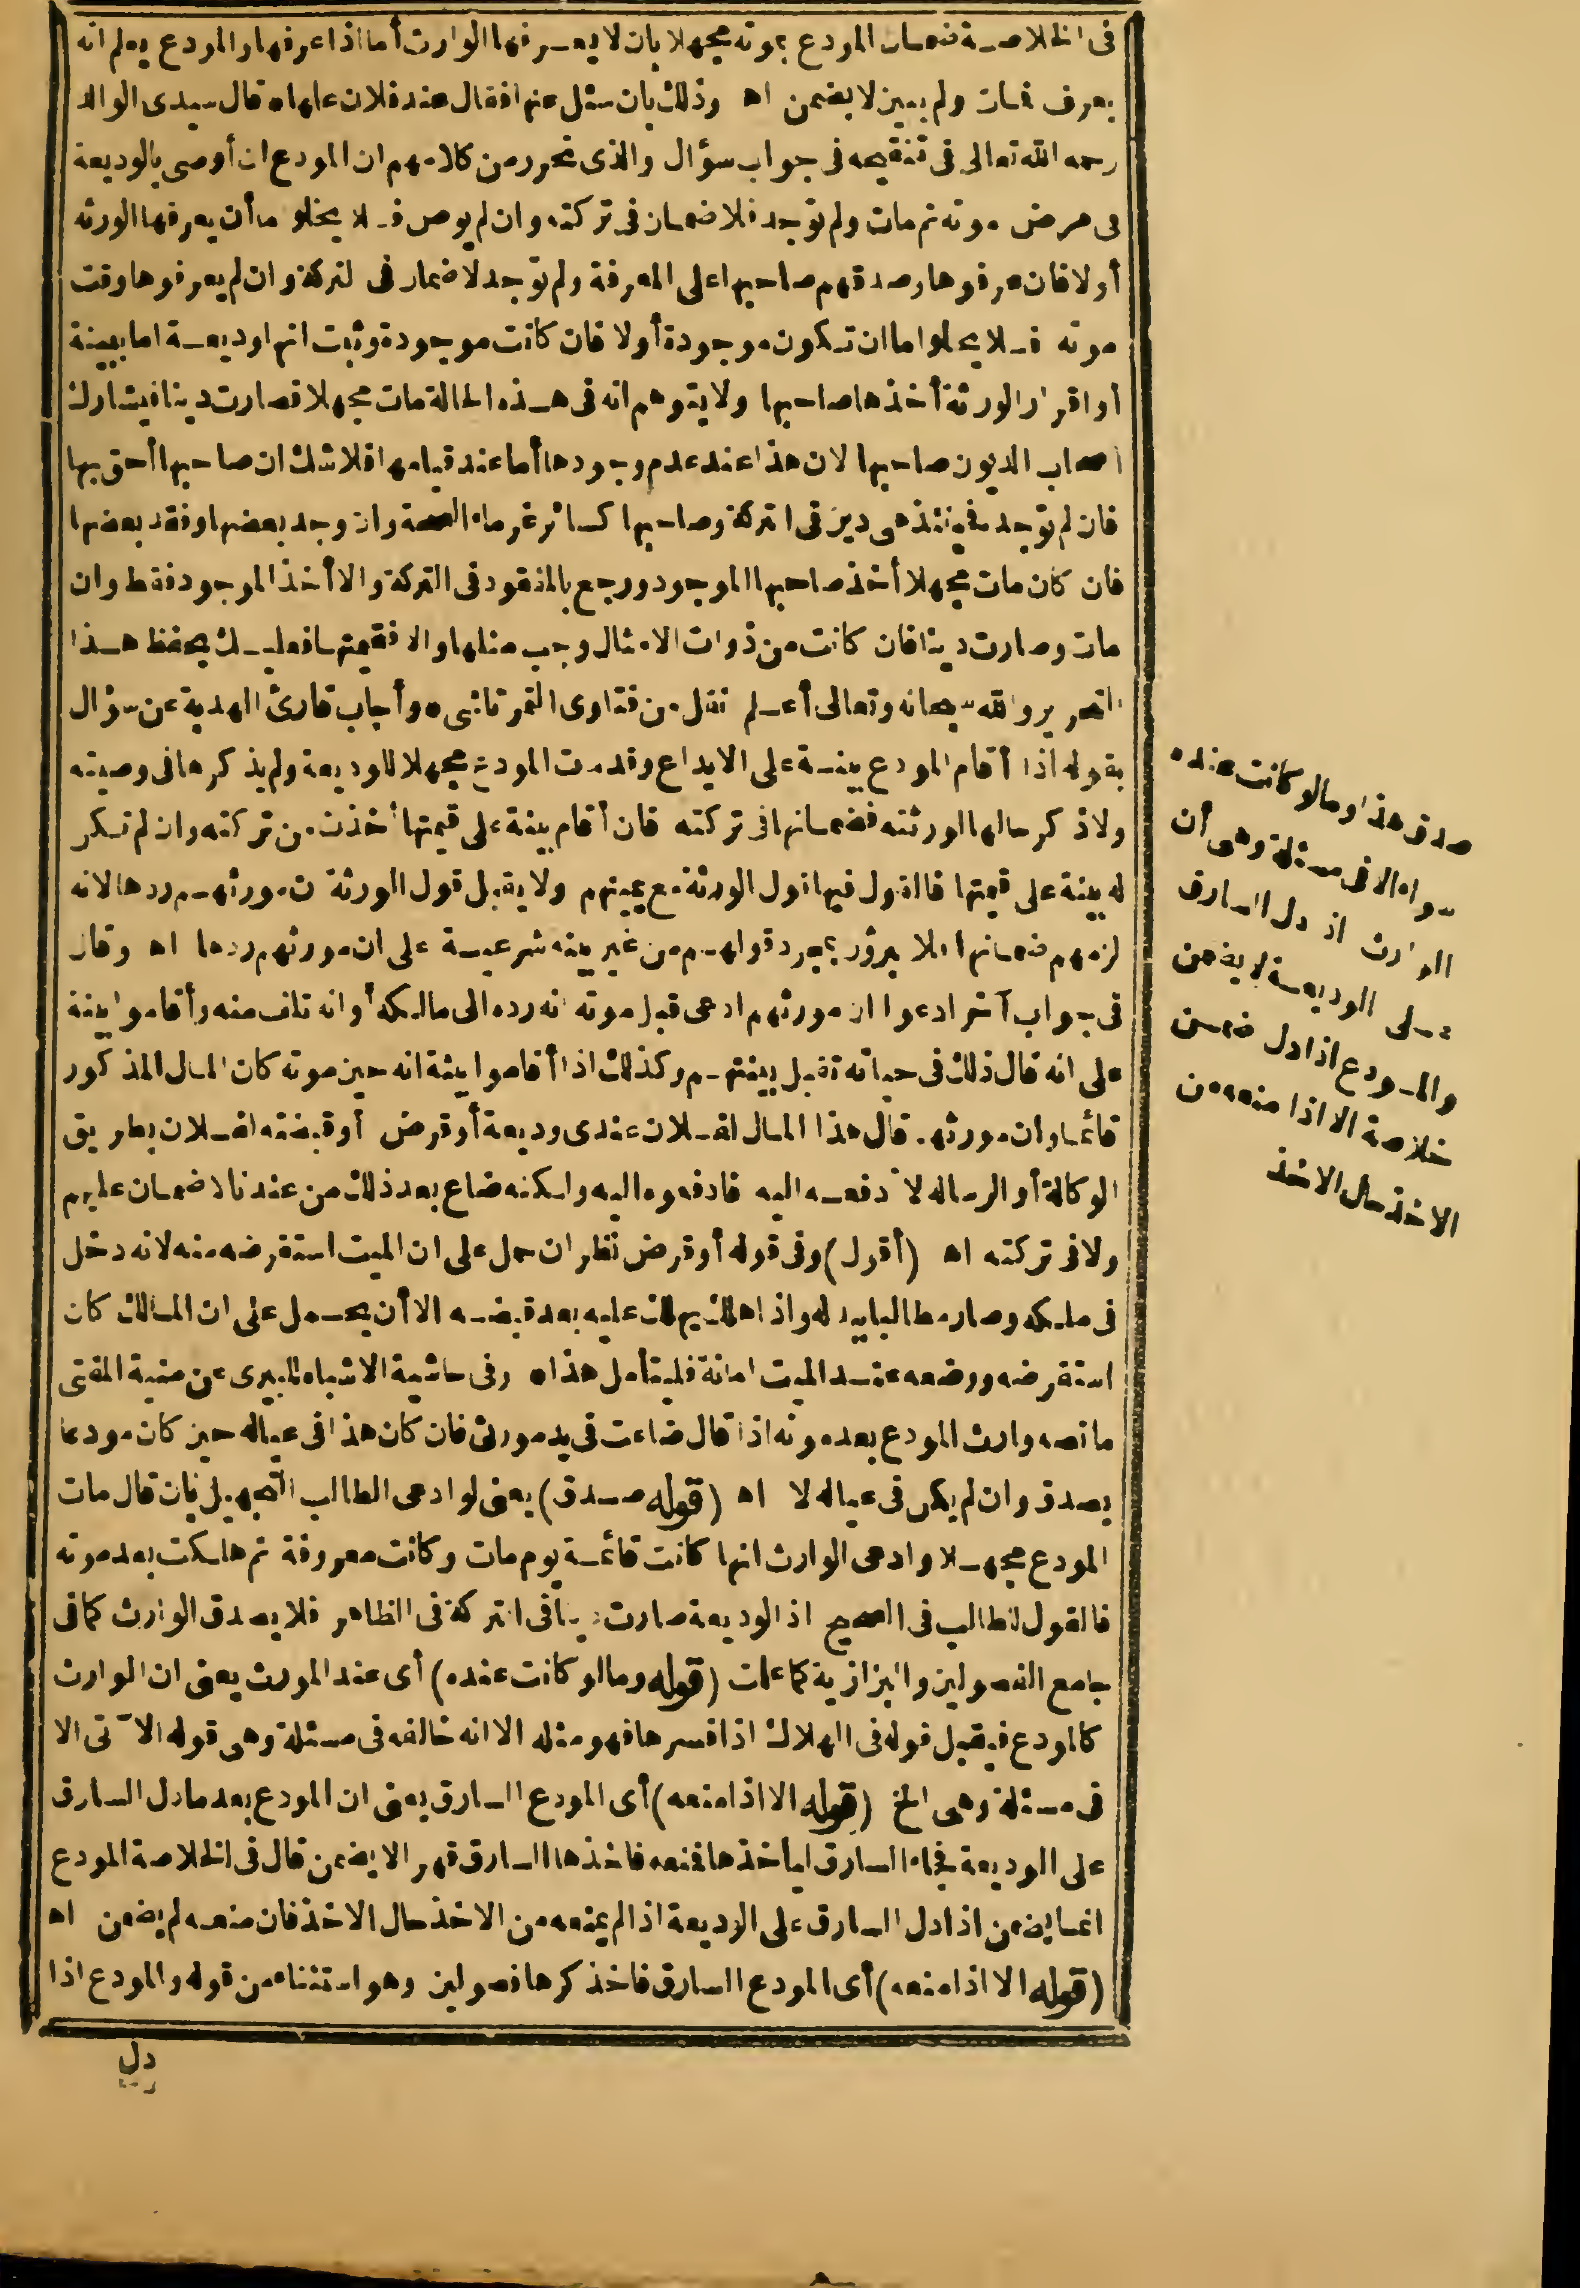 فى الخلاصة ضمان المودع بموته مجهلا بان لا يعرفها الوارث أما اذا عرفها والمودع يعلم انه
يعرف فمات ولم يبين لا يضمن اه وذلك بان سئل عنها فقال عند فلان علمها اه قال سيدى الوالد
رحمه الله تعالى فى تنقيحه فى جواب سؤال والذى تحرر من كلامهم ان المودع ان أوصى بالوديعة
فى مرض موته ثم مات ولم توجد فلا ضمان فى تركته وان لم يوص فلا يخلو اما أن يعرفها الورثة
أولا فان عرفوها وصدقهم صاحبها على المعرفة ولم توجد لا ضمان فى التركة وان لم يعرفوها وقت
موته فلا يخلو اما ان تكون موجودة أولا فان كانت موجودة وثبت انها وديعة اما ببينة
أو اقرار الورثة أخذها صاحبها ولا يتوهم انه فى هذه الحالة مات مجهلا فصارت دينا فيشارك
أصحاب الديون صاحبها لان هذا عند عدم وجودها أما عند قيامها فلا شك ان صاحبها أحق بها
فان لم توجد فحينئذ هى دين فى التركة وصاحبها كسائر غرماء الصحة وان وجد بعضها وفقد بعضها
فان كان مات مجهلا أخذ صاحبها الموجود ورجع بالمفقود فى التركة والا أخذ الموجود فقط وان
مات وصارت دينا فان كانت من ذوات الامثال وجب مثلها والا فقيمتها فعليك بحفظ هذا
التحرير والله سبحانه وتعالى أعلم نقل من فتاوى التمرتاشى اه وأجاب قارئ الهدية عن سؤال
بقوله اذا أقام المودع بينة على الايداع وقد مات المودع مجهلا للوديعة ولم يذكرها فى وصيته
ولا ذكر حالها لورثته فضمانها فى تركته فان أقام بينة على قيمتها أخذت من تركته وان لم تكن
له بينة على قيمتها فالقول فيها قول الورثة مع يمينهم ولا يقبل قول الورثة ان مورثهم ردها لانه
لزمهم ضمانها فلا يبرؤن بمجرد قولهم من غير بينة شرعية على ان مورثهم ردها اه وقال
فى جواب آخر ادعوا ان مورثهم ادعى قبل موته انه رده الى مالكه أو انه تلف منه وأقاموا بينة
على انه قال ذلك فى حياته تقبل بينتهم وكذلك اذا أقاموا بينة انه حين موته كان المال المذكور
قائما وان مورثهم قال هذا المال لفلان عندى وديعة أو قرض أو قبضته لفلان بطريق
الوكالة أو الرسالة لادفعه اليه فادفعوه اليه ولكنه ضاع بعد ذلك من عندنا لا ضمان عليهم
ولا فى تركته اه (أقول) وفى قوله أو قرض نظر ان حمل على ان الميت استقرضه منه لانه دخل
فى ملكه وصار مطالبا ببدله واذا هلك يهلك عليه بعد قبضه الا أن يحمل على ان المالك كان
استقرضه ووضعه عند الميت امانة فليتأمل هذا اه وفى حاشية الاشباه للبيرى عن منية المفتى
ما نصه وارث المودع بعد موته اذا قال ضاعت فى يد مورثى فان كان هذا فى عياله حين كان مودعا
يصدق وان لم يكن فى عياله لا اه (قوله صدق) يعنى لو ادعى الطالب التجهيل بان قال مات
المودع مجهلا وادعى الوارث انها كانت قائمة يوم مات وكانت معروفة ثم هلكت بعد موته
فالقول للطالب فى الصحيح اذ الوديعة صارت دينا فى التركة فى الظاهر فلا يصدق الوارث كما فى
جامع الفصولين والبزازية كما علمت (قوله وما لو كانت عنده) أى عند المورث يعنى ان الوارث
كالمودع فيقبل قوله فى الهلاك اذا فسرها فهو مثله الا انه خالفه فى مسئلة وهى قوله الآتى الا
فى مسئلة وهى الخ (قوله الا اذا منعه) أى المودع السارق يعنى ان المودع بعد ما دل السارق
على الوديعة فجاء السارق ليأخذها فمنعه فاخذها السارق قهرا لا يضمن قال فى الخلاصة المودع
انما يضمن اذا دل السارق على الوديعة اذا لم يمنعه من الاخذ حال الاخذ فان منعه لم يضمن اه
(قوله الا اذا منعه) أى المودع السارق فاخذ كرها فصولين وهو استثناء من قوله والمودع اذا
دل
صدق هذا وما لو كانت عنده
سواء الا فى مسئلة وهى أن
الوارث اذا دل السارق
على الوديعة لا يضمن
والمودع اذا دل ضمن
خلاصة الا اذا منعه من
الاخذ حال الاخذ